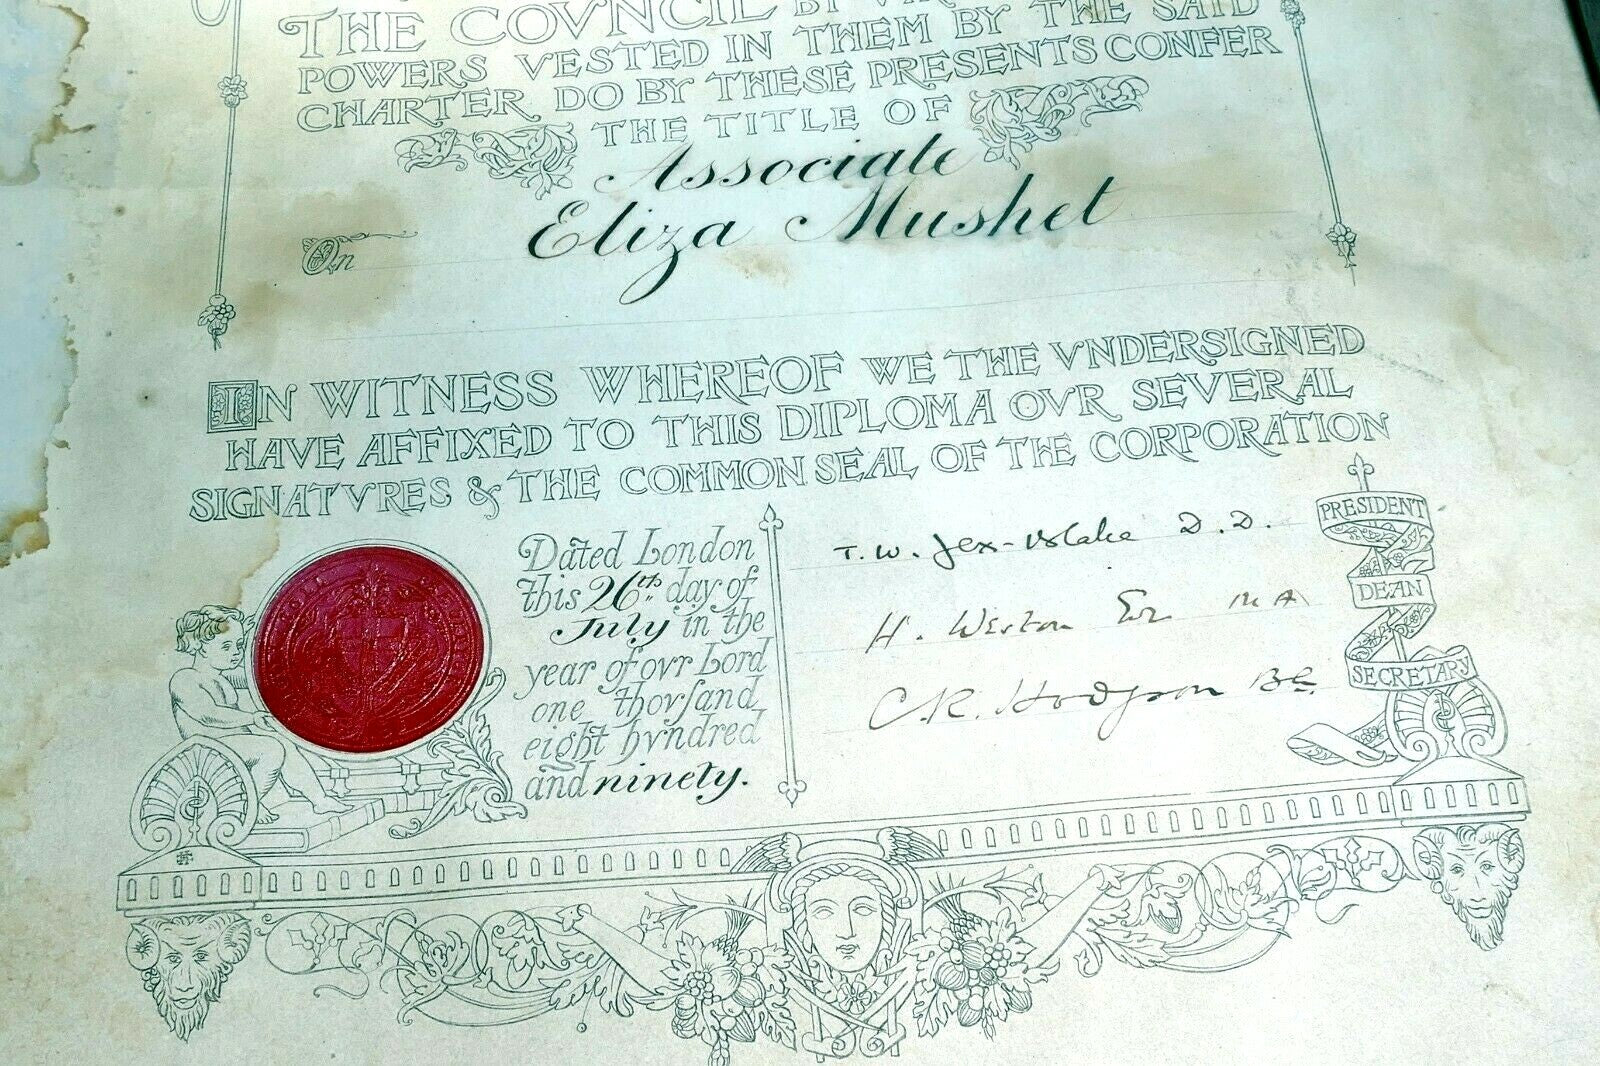 THE COVNCIL BY
POWERS VESTED IN THEM BY THE SAID
CHARTER DO BY THESE PRESENTS CONFER
THE TITLE OF
Associate
On Eliza Mushet
IN WITNESS WHEREOF WE THE VNDERSIGNED
HAVE AFFIXED TO THIS DIPLOMA OVR SEVERAL
SIGNATVRES & THE COMMON SEAL OF THE CORPORATION
Dated London
this 26th day of
July in the
year of ovr Lord
one thovſand
eight hvndred
and ninety.
T. W. Jex-Blake D.D.
H. Weston Esq M A
C. R. Hodgson BA.
PRESIDENT
DEAN
SECRETARY